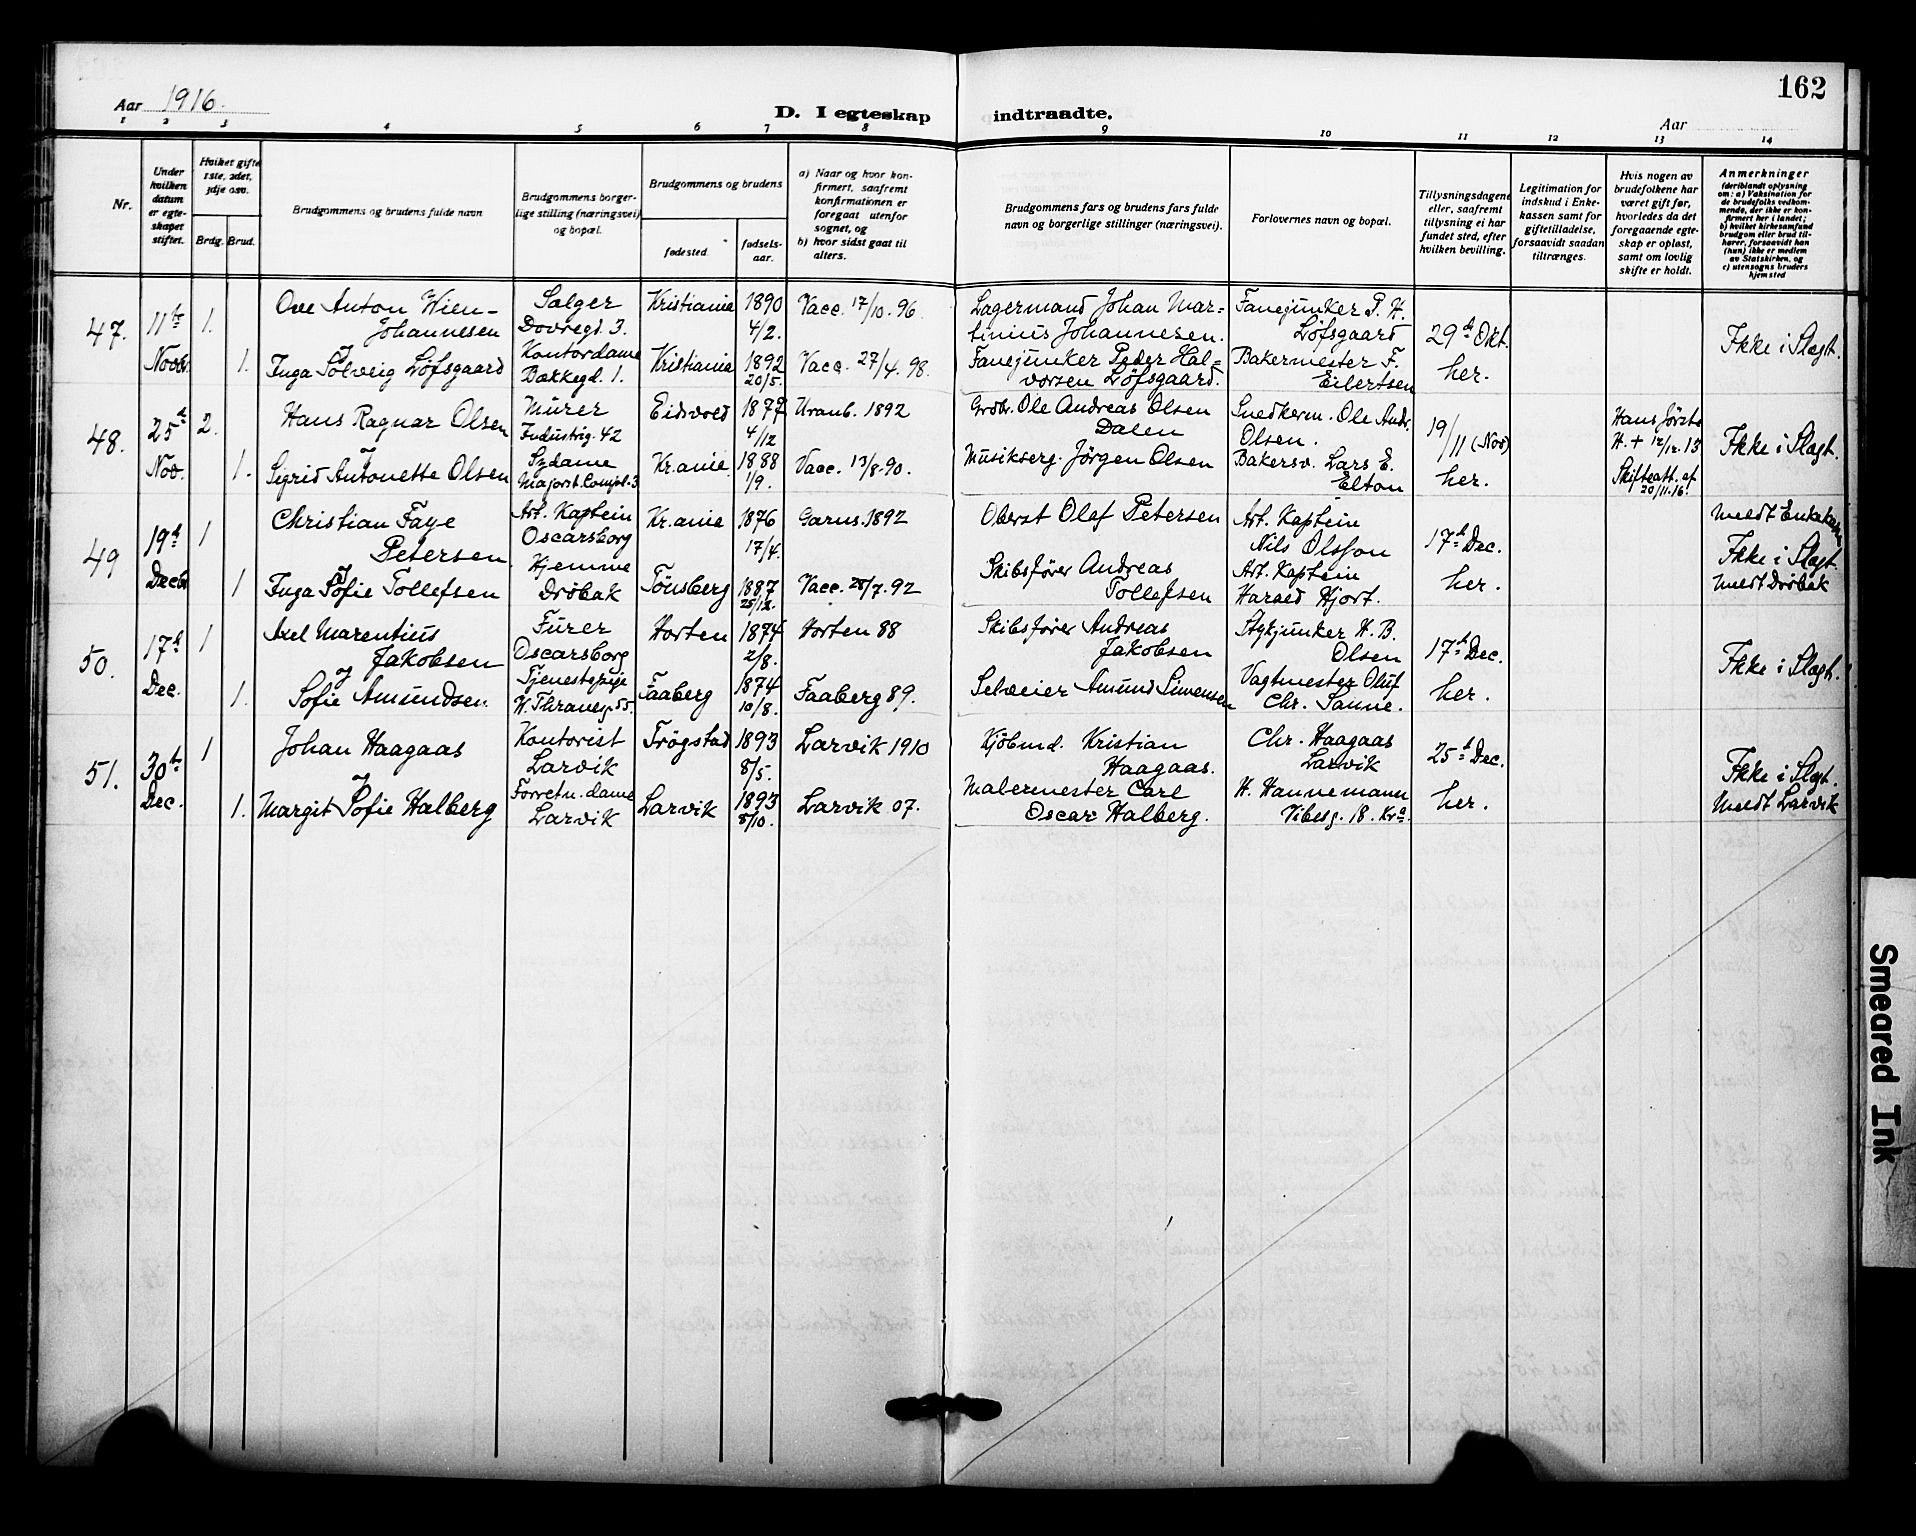 162
Aar 1916.
D. I egteskap indtraadte.
Aar
1 2 3 4 5 6 7 8 9 10 11 12 13 14
Nr.
Under hvilken datum er egteskapet stiftet.
Hvilket gifte 1ste, 2det, 3dje osv.
Brdg. Brud.
Brudgommens og brudens fulde navn
Brudgommens borgerlige stilling (næringsvei) og bopæl.
Brudgommens og brudens
fødested.
fødselsaar.
a) Naar og hvor konfirmert, saafremt konfirmationen er foregaat utenfor sognet, og
b) hvor sidst gaat til alters.
Brudgommens fars og brudens fars fulde navn og borgerlige stillinger (næringsvei).
Forlovernes navn og bopæl.
Tillysningsdagene eller, saafremt tillysning ei har fundet sted, efter hvilken bevilling.
Legitimation for indskud i Enkekassen samt for giftetilladelse, forsaavidt saadan tiltrænges.
Hvis nogen av brudefolkene har været gift før, hvorledes da det foregaaende egteskap er opløst, samt om lovlig skifte er holdt.
Anmerkninger
(deriblandt oplysning om: a) Vaksination for de brudefolks vedkommende, der ikke er konfirmert her i landet; b) hvilket kirkesamfund brudgom eller brud tilhører, forsaavidt han (hun) ikke er medlem av Statskirken, og c) utensogns bruders hjemsted
47. 11te Novbr. 1. Ove Anton Wien-Johannesen Sælger Dovregd. 3. Kristiania 1890 4/2. Vacc. 17/10. 96. Lagermand Johan Martinius Johannesen. Fanejunker P. H. Løfsgaard 29d Okt. her. Ikke i Slagt.
1. Inga Solveig Løfsgaard Kontordame Bakkegd. 1. Kristiania 1892 20/5. Vacc. 27/4. 98. Fanejunker Peder Halvorsen Løfsgaard. Bakermester F. Eilertsen
48. 25d Nov. 2. Hans Ragnar Olsen Murer Industrig. 42 Eidsvold 1877 4/12 Uranb. 1892 Grdbr. Ole Andreas Olsen Dalen Snedkerm. Ole Andr. Olsen. 19/11 (Nov) her. Hans første H. + 12/12. 13 Skifteatt. af 20/11.16. Ikke i Slagt.
1. Sigrid Antonette Olsen Sydame Majorst. Kr.ania 1888 1/9. Vacc. 13/8. 90. Musikserg. Jörgen Olsen Bakersv. Lars E. Elton
49 19d Decbr 1 Christian Faye Petersen Art. Kaptein Oscarsborg Kr.ania 1876 17/4. Garns. 1892 Oberst Olaf Petersen Art. Kaptein Nils Olsson 17d Dec. her. Meldt Enkekassen Ikke i Slagt. Meldt Drøbak
1 Inga Sofie Tollefsen Hjemme Drøbak Tønsberg 1887 25/12. Vacc. 28/7. 92 Skibsfører Andreas Tollefsen Art. Kaptein Harald Hjort.
50. 17d Dec. 1 Axel Marentius Jakobsen Furer Oscarsborg Horten 1874 2/8. Horten 88 Skibsfører Andreas Jakobsen Stykjunker H. B. Olsen 17d Dec. her. Ikke i Slagt.
1. Sofie Amundsen. Tjenestepige M. Thranesg. 55. Faaberg 1874 10/8. Faaberg 89. Selveier Amund Simensen Vagtmester Oluf Chr. Sanne.
51. 30te Dec. 1 Johan Haagaas Kontorist Larvik Trøgstad 1893 8/5. Larvik 1910 Kjøbmd. Kristian Haagaas. Chr. Haagaas Larvik 25d Dec. her. Ikke i Slagt. Meldt Larvik
1. Margit Sofie Halberg Forretn. dame Larvik Larvik 1893 8/10. Larvik 07. Malermester Carl Oscar Halberg. H. Hannemann Vibesg. 18. Kra.
Smeared Ink